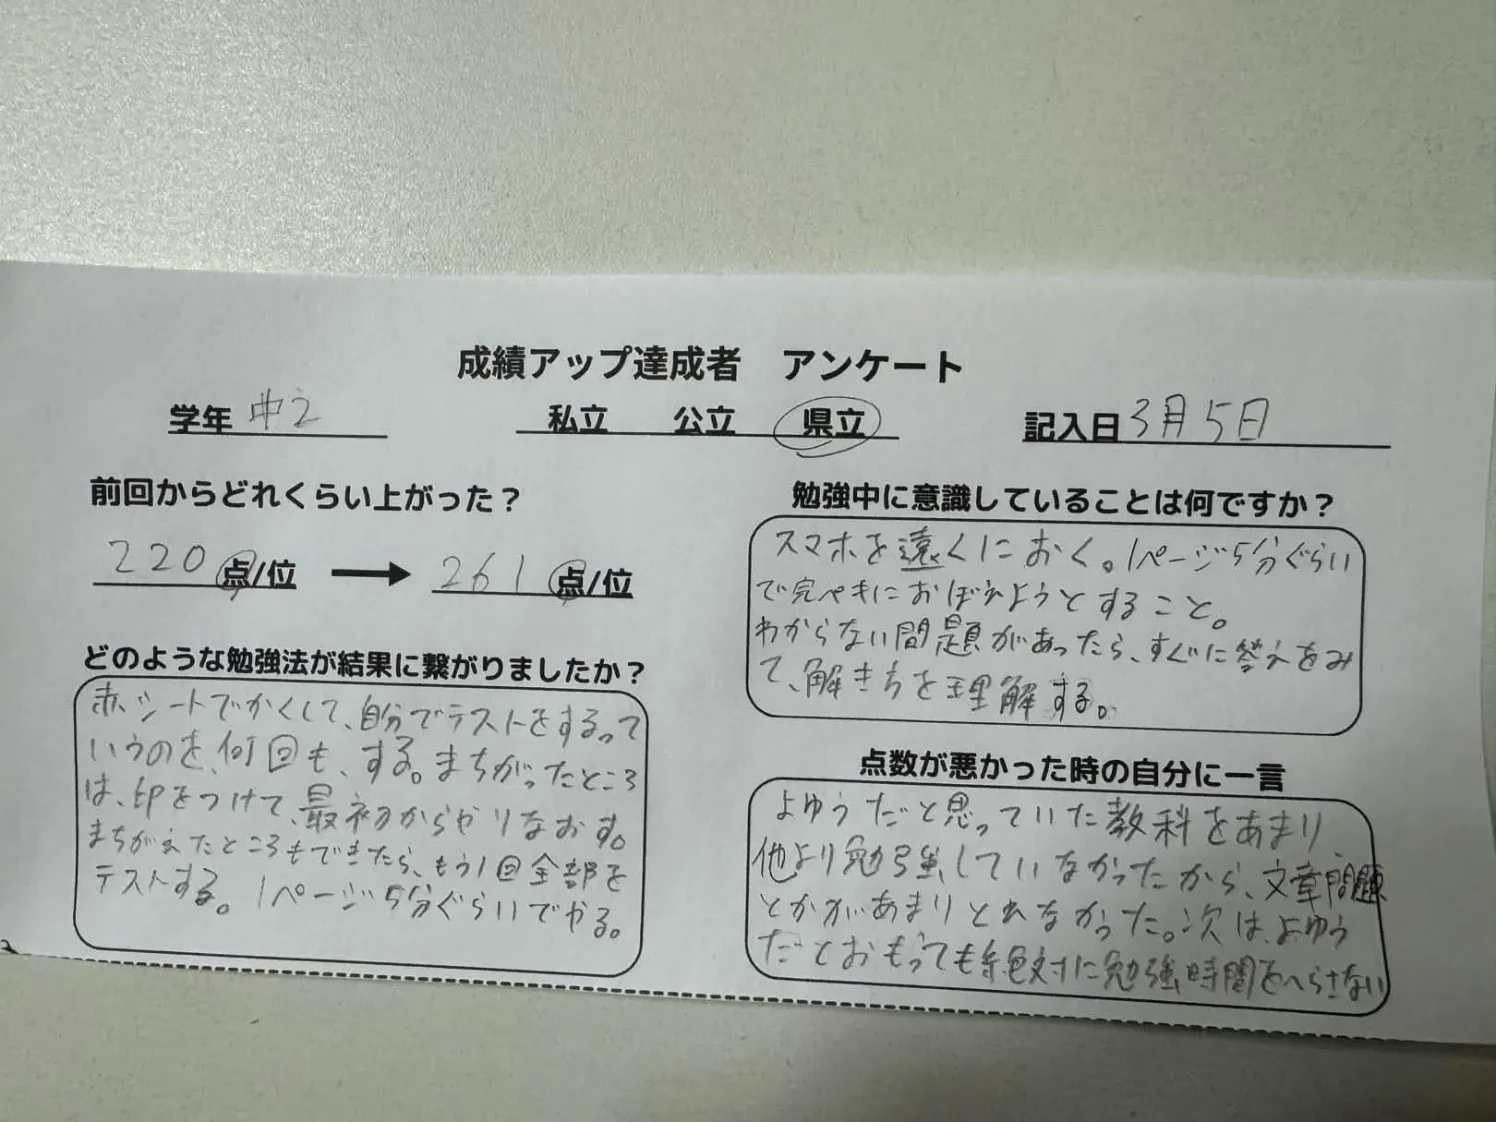 成績アップ達成者 アンケート
学年 中2 私立 公立 県立 記入日 3月5日
前回からどれくらい上がった？
220 点/位 → 261 点/位
どのような勉強法が結果に繋がりましたか？
赤シートでかくして、自分でテストをするって
いうのを、何回も、する。まちがったところ
は、印をつけて、最初からやりなおす。
まちがえたところもできたら、もう1回全部を
テストする。1ページ5分ぐらいでやる。
勉強中に意識していることは何ですか？
スマホを遠くにおく。1ページ5分ぐらい
で完ぺきにおぼえようとすること。
わからない問題があったら、すぐに答えをみ
て、解きちを理解する。
点数が悪かった時の自分に一言
よゆうだと思っていた教科をあまり、
他より勉強していなかったから、文章問題
とかがあまりとれなかった。次は、よゆう
だとおもっても絶対に勉強時間をへらさない